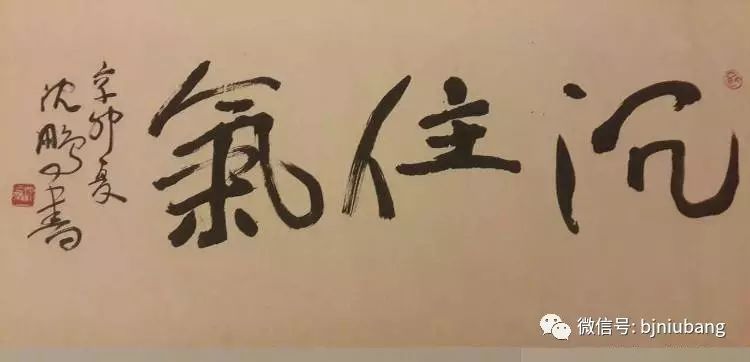 沉住氣
辛卯夏
沈鵬書
微信号: bjniubang